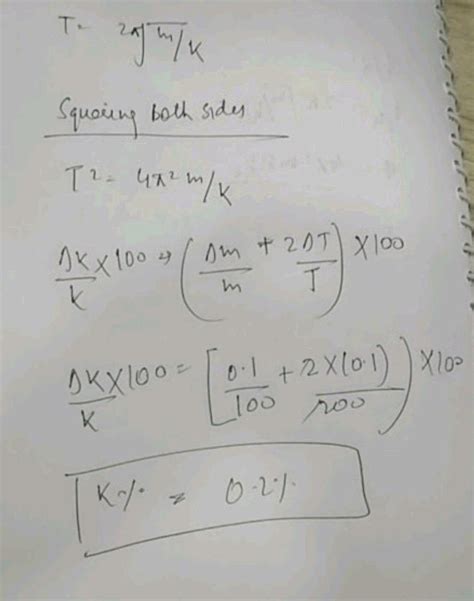 T = 2π√m/K
Squaring both sides
T² = 4π² m/K
ΔK/K × 100 → (Δm/m + 2ΔT/T) × 100
ΔK/K × 100 = [0.1/100 + 2×(0.1)/200) × 100
K % = 0.2 %